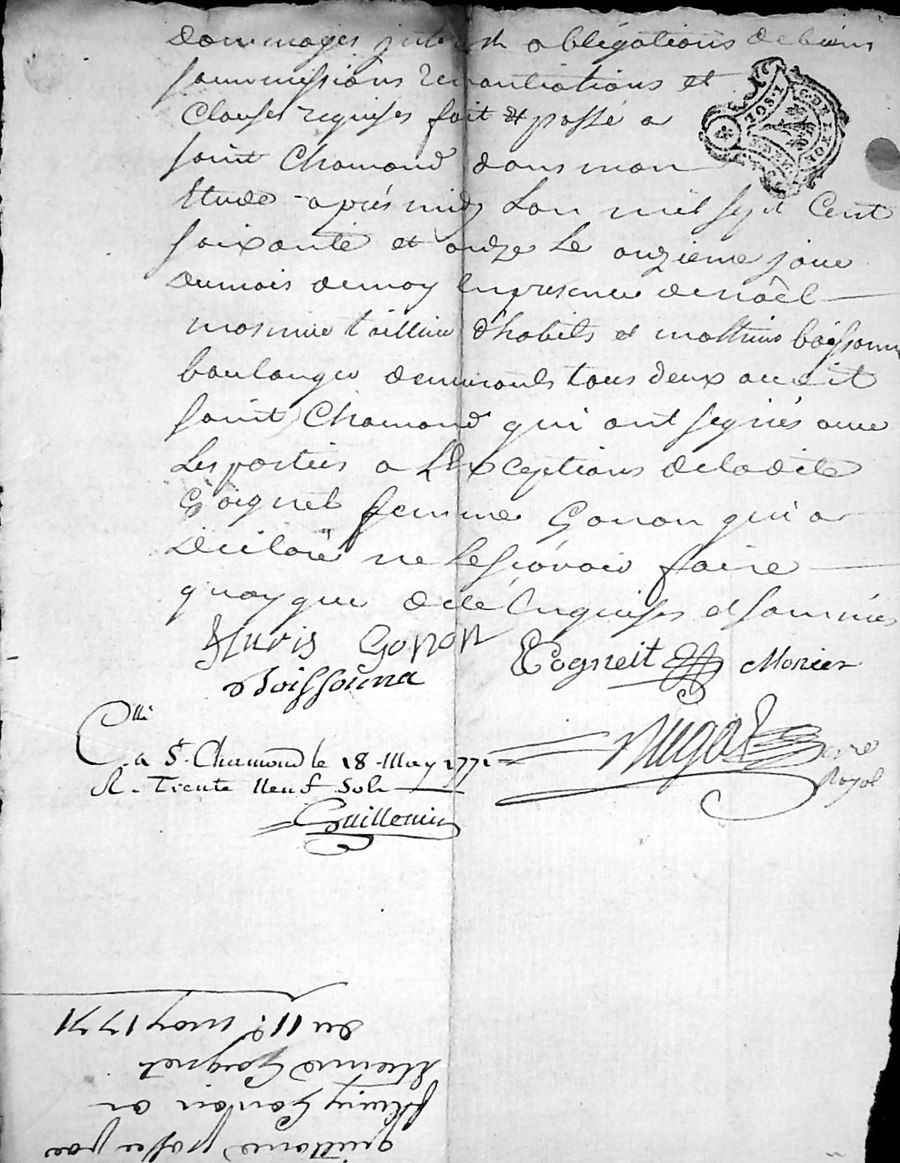 dommages interest obligations de biens
soummissions renontiations et
Clauses requises fait et passé a
saint Chamond dans mon
Etude aprés midy Lan mil sept Cent
soixante et onze le onzieme jour
du mois de may En presence de noêl
mosnier tailleur d'habits et mathieu boissonna
boulanger demeurants tous deux au dit
saint Chamond qui ont signés avec
Les parties a LExceptions de ladite
Goignet femme Gonon qui a
declaré ne le sçavoir faire
quoyque de ce Enquises et sommées
fluris Gonon
Cogneit Monier
Boissonna
C.lle
a St. Chamond le 18 May 1771
R. Trente Neuf Sols
Guillemin
re
Royal
G. DE LYON
1. SOL
quittance passée par
fleury Gonon a
Etienne Goignet
du 11e. may 1771